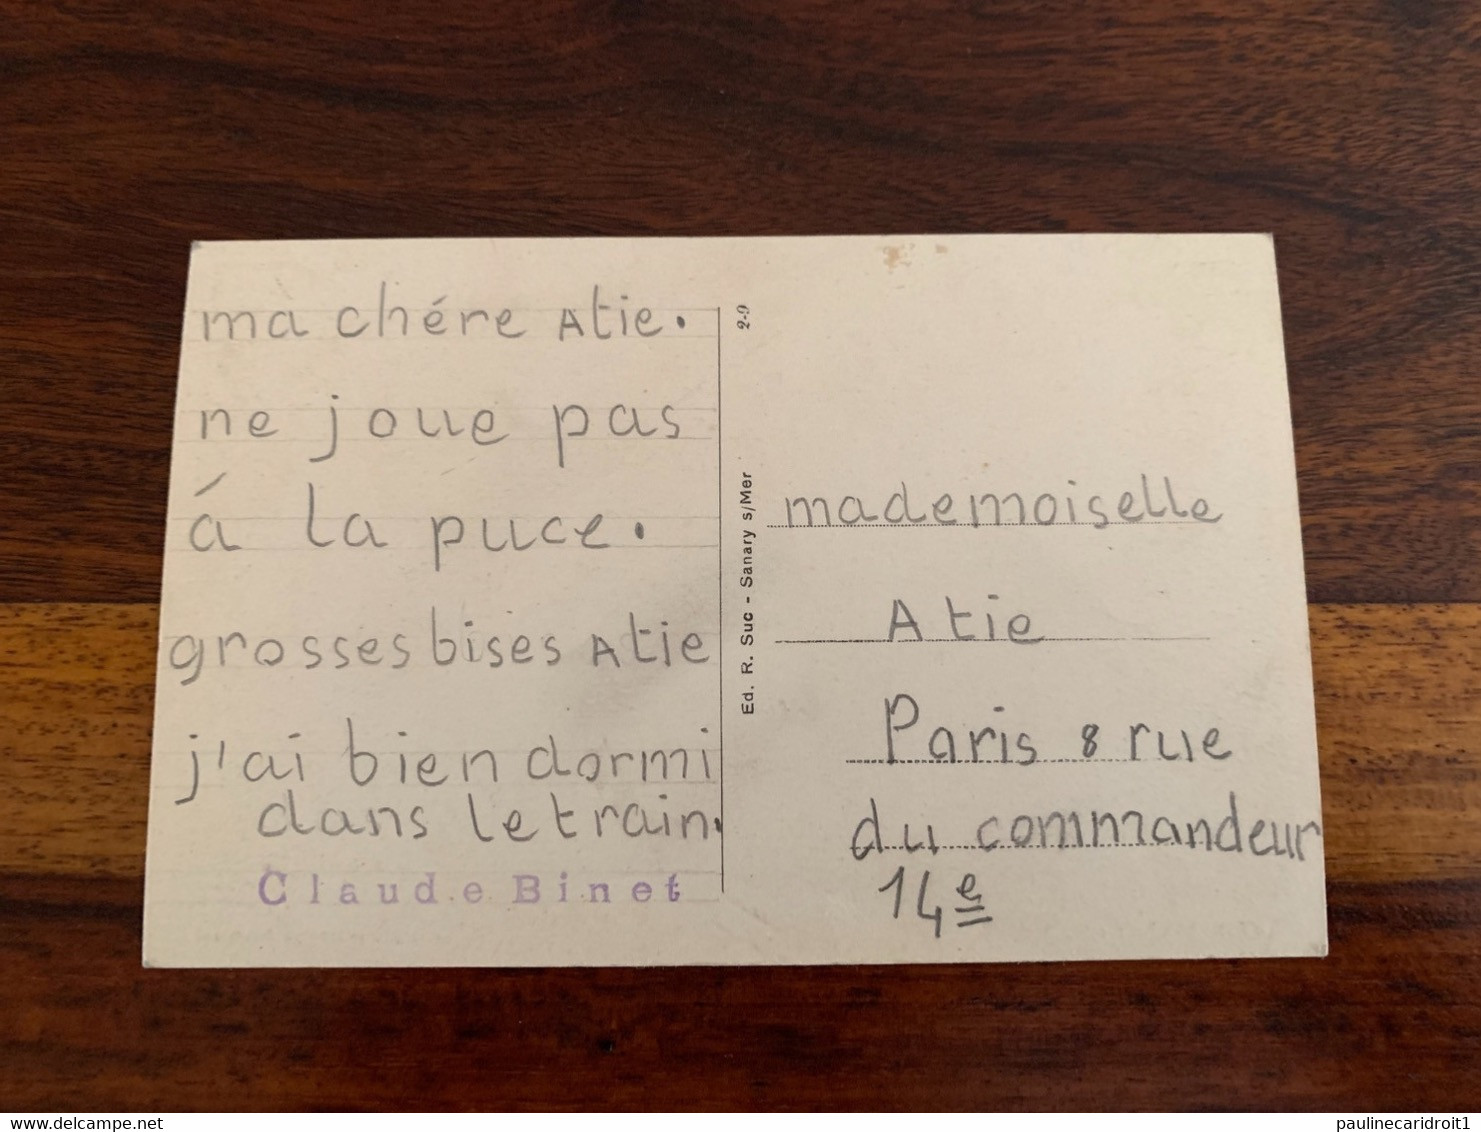 ma chére Atie.
ne joue pas
á la puce.
grosses bises Atie
j'ai bien dormi
dans le train.
Claude Binet
2-9
Ed. R. Suc - Sanary s/Mer
mademoiselle
Atie
Paris 8 rue
du commandeur
14e
www.delcampe.net
paulinecaridroit1